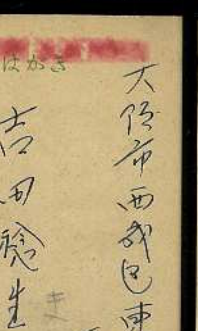 はがき
大阪市西成区東
吉田稔生